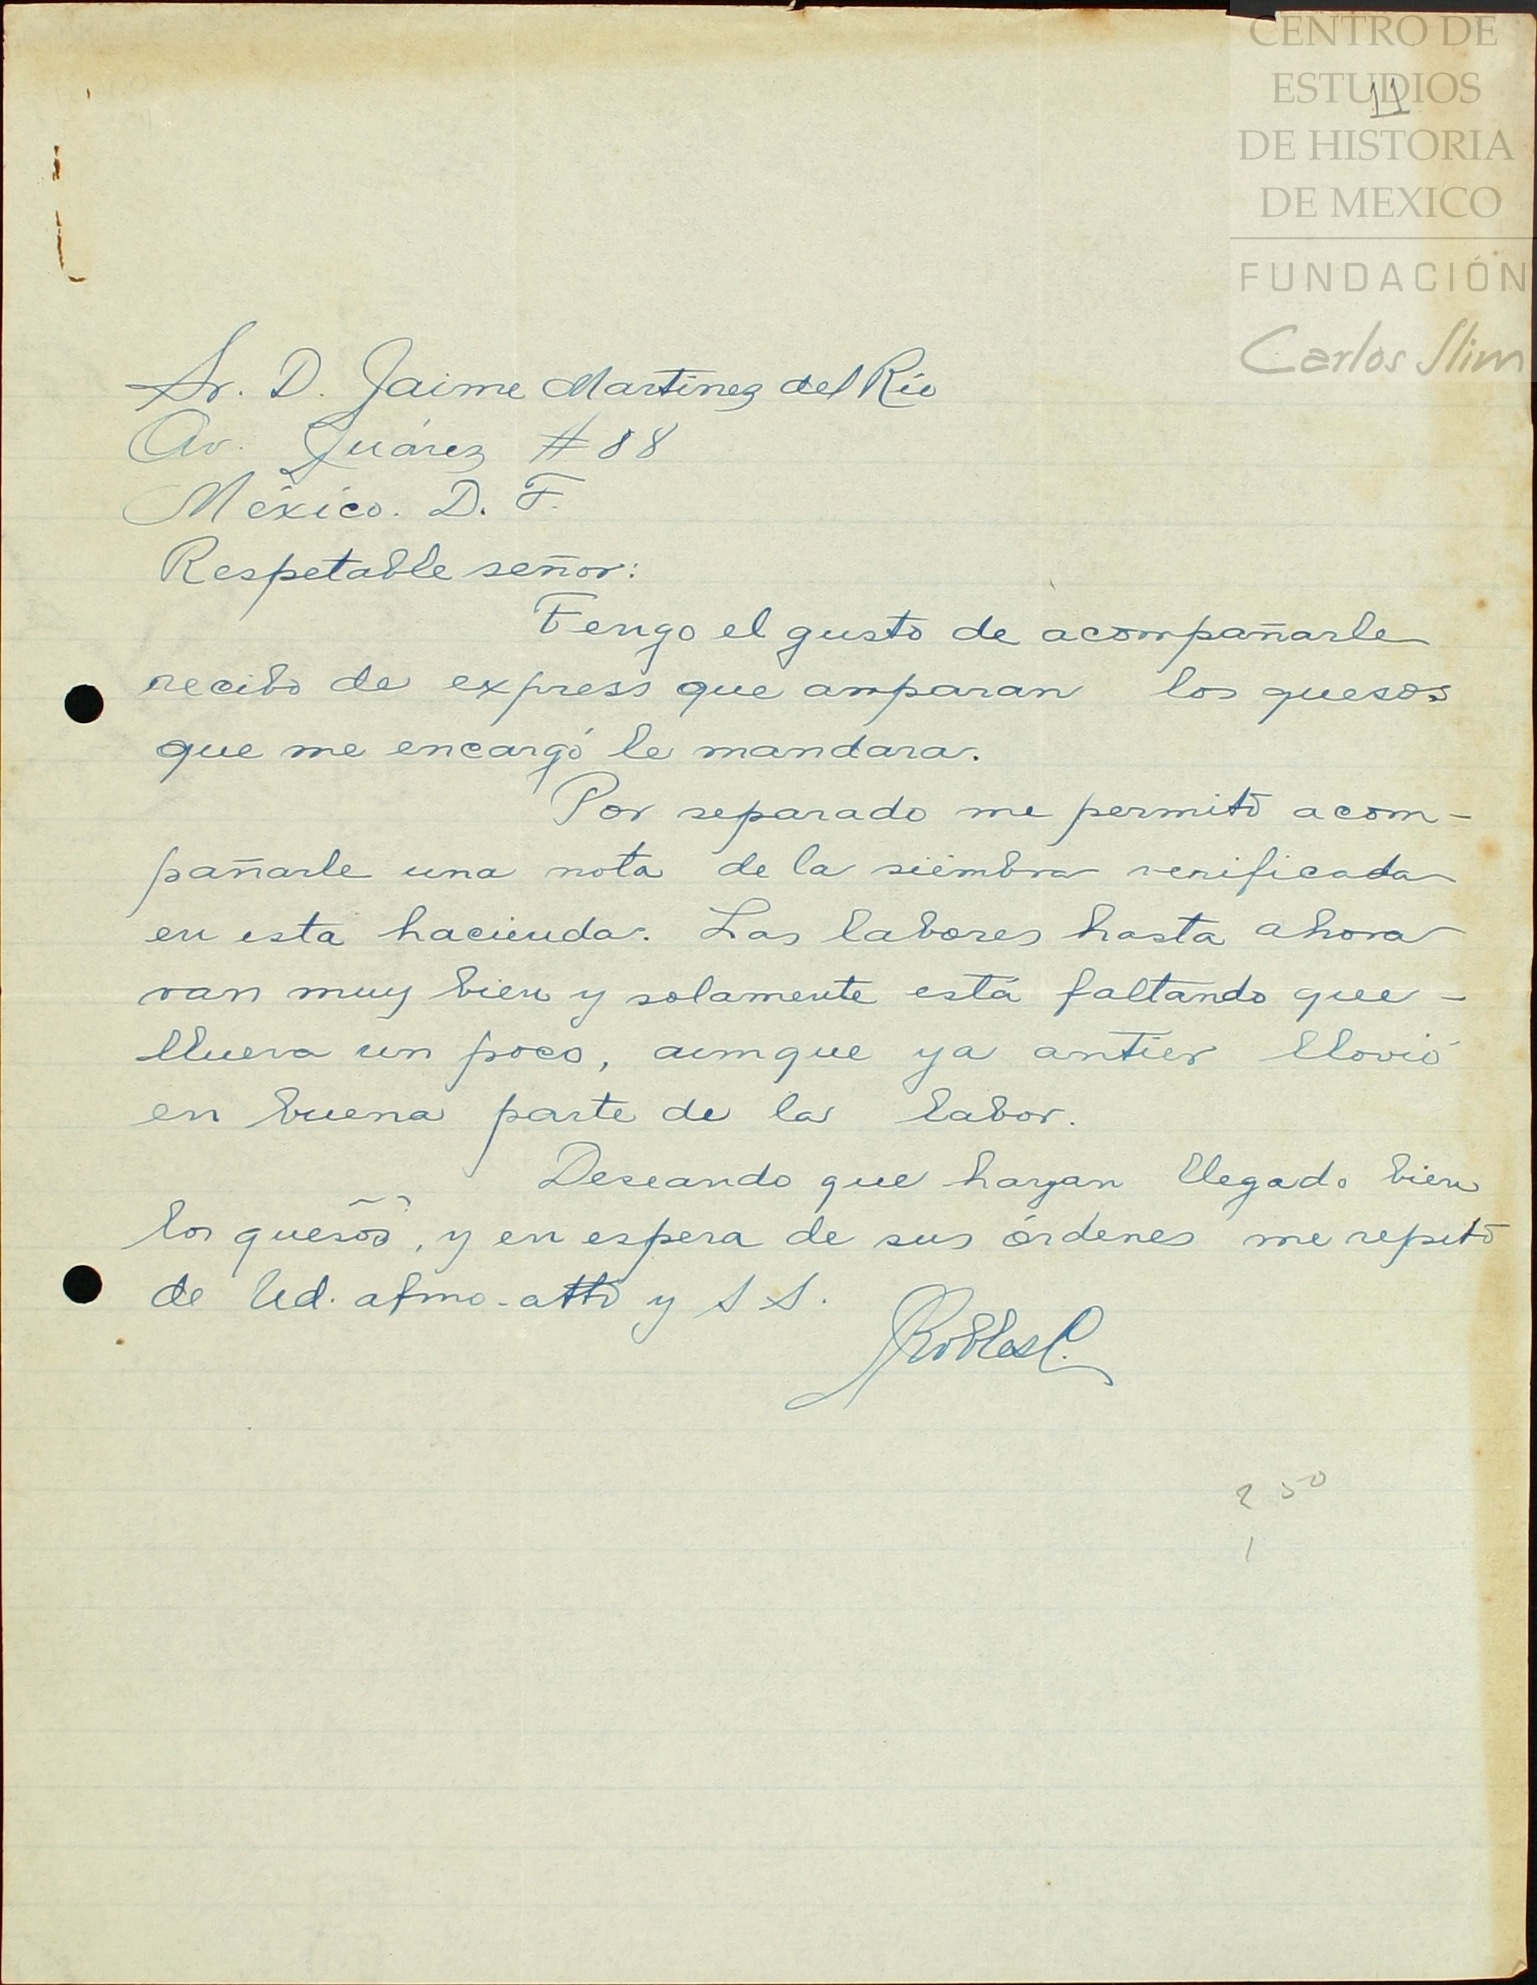 CENTRO DE
ESTUDIOS
DE HISTORIA
DE MEXICO
FUNDACIÓN
Carlos Slim
11
Sr. D. Jaime Martinez del Río
Av. Juárez #88
México. D. F.
Respetable señor:
Tengo el gusto de acompañarle
recibo de express que amparan los quesos
que me encargó le mandara.
Por separado me permito acom-
pañarle una nota de la siémbra verificada
en esta hacienda. Las labores hasta ahora
van muy bien y solamente está faltando que -
llueva un poco, aunque ya antier llovió
en buena parte de la labor.
Deseando que hayan llegado bien
los quesos, y en espera de sus órdenes me repito
de Ud. afmo. atto y S S.
JRobles C.
2 50
1